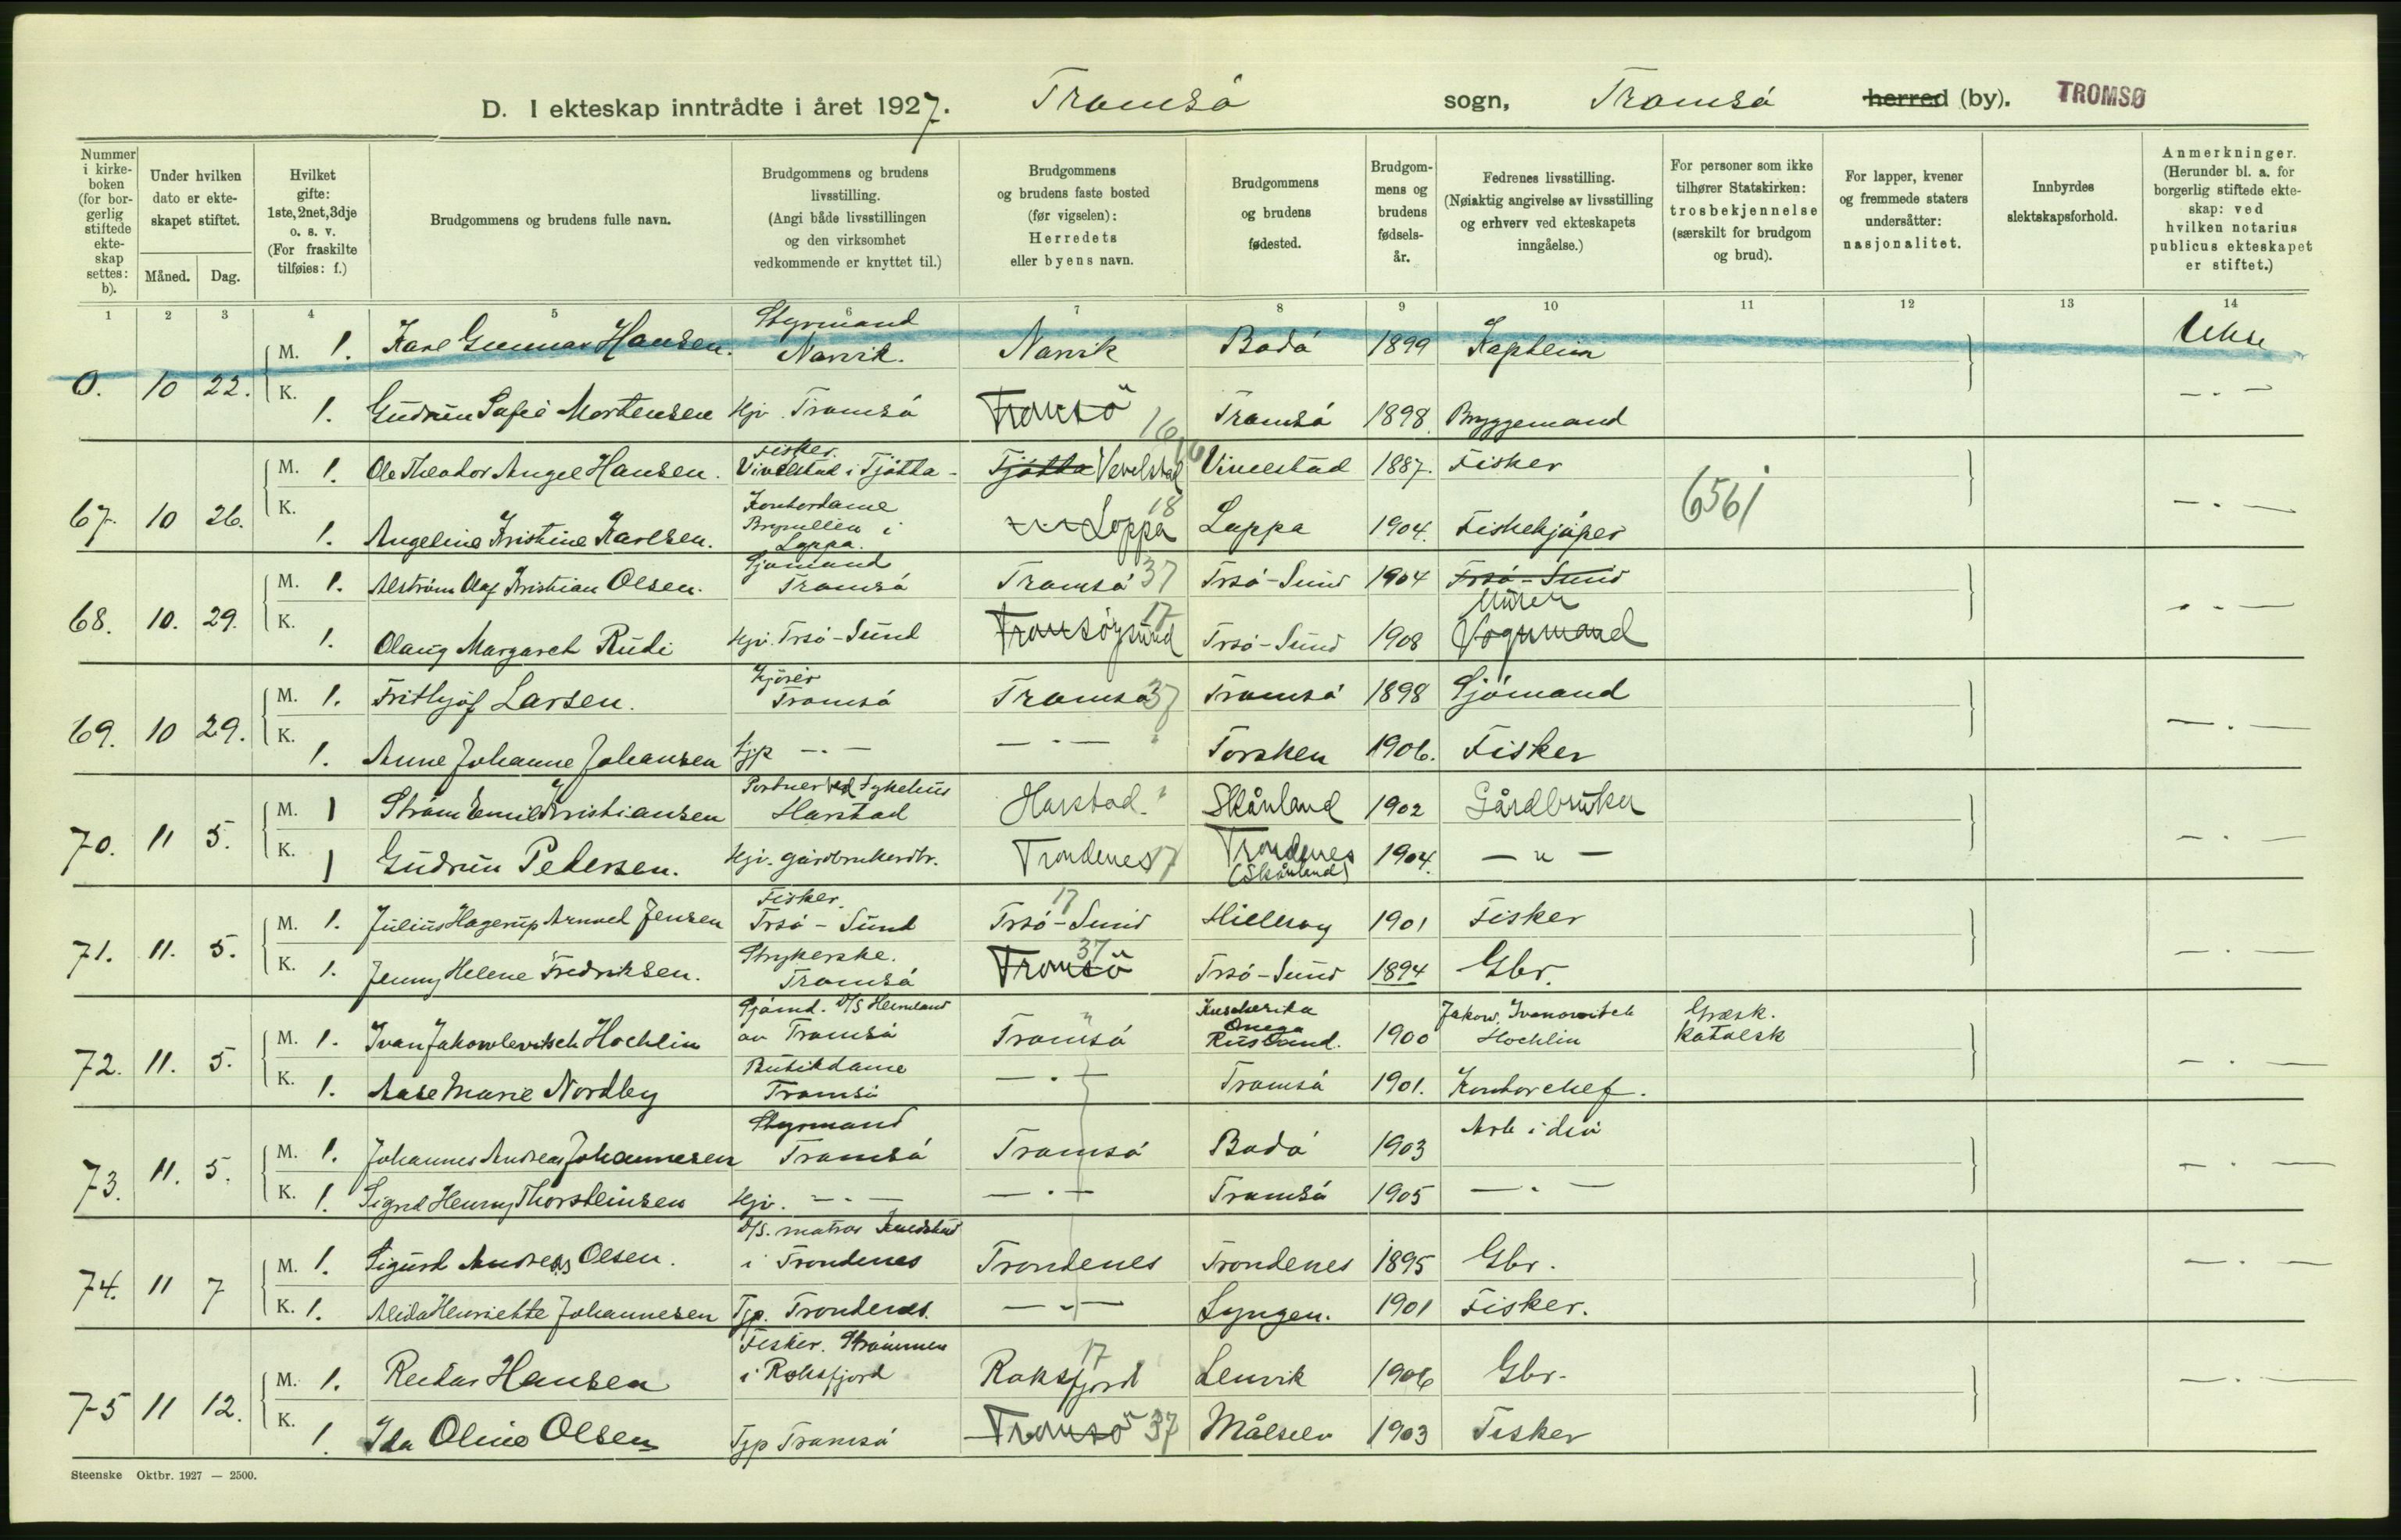 D. I ekteskap inntrådte i året 1927. Tromsö sogn, Tromsö herred (by). TROMSØ
Nummer i kirke-boken (for bor-gerlig stiftede ekte-skap settes: b).
Under hvilken dato er ekte-skapet stiftet.
Måned. Dag.
Hvilket gifte: 1ste, 2net, 3dje o. s. v. (For fraskilte tilføies: f.)
Brudgommens og brudens fulle navn.
Brudgommens og brudens livsstilling. (Angi både livsstillingen og den virksomhet vedkommende er knyttet til.)
Brudgommens og brudens faste bosted (før vigselen): Herredets eller byens navn.
Brudgommens og brudens fødested.
Brudgom-mens og brudens fødsels-år.
Fedrenes livsstilling. (Nøiaktig angivelse av livsstilling og erhverv ved ekteskapets inngåelse.)
For personer som ikke tilhører Statskirken: trosbekjennelse (særskilt for brudgom og brud).
For lapper, kvener og fremmede staters undersåtter: nasjonalitet.
Innbyrdes slektskapsforhold.
Anmerkninger. (Herunder bl. a. for borgerlig stiftede ekte-skap: ved hvilken notarius publicus ekteskapet er stiftet.)
1 2 3 4 5 6 7 8 9 10 11 12 13 14
0. 10 22.
M. 1. Karl Gunnar Hansen. Styrmand Narvik. Narvik Bodö 1899 Kaptein
K. 1. Gudrun Sofie Mortensen Hjv. Tromsö Tromsö Tromsö 1898 Bryggemand — . —
67. 10 26.
M. 1. Ole Theodor Angel Hansen. Fisker. Vivelstad i Tjötta - Tjøtta Vevelstad 16 Vivelstad 1887. Fisker
K. 1. Angeline Kristine Karlsen. Kontordame i Loppa. Loppa 18 Loppa 1904. Fiskekjöper 6561 — . —
68. 10. 29.
M. 1. Alström Olaf Kristian Olsen. Sjömand Tromsö Tromsö 37 Trsö-Sund 1904 Trsö-Sund Murer
K. 1. Olaug Margareth Rudi Hjv. Trsö-Sund Tromsøysund 17 Trsö-Sund 1908 Vognmand — . —
69. 10 29.
M. 1. Frithjof Larsen. Kjörer Tromsö Tromsö 37 Tromsö 1898 Sjömand
K. 1. Anne Johanne Johansen Tjp — . — — . — Torsken 1906. Fisker — . —
70. 11 5.
M. 1 Ström Emil Kristiansen Portner ved Sykehus Harstad Harstad Skånland 1902 Gårdbruker
K. 1 Gudrun Pedersen. Hjv. gårdbrukerdtr. Trondenes 17 Trondenes (Skånland) 1904. — " — — . —
71. 11. 5.
M. 1. Julius Hagerup Arnvel Jensen Fisker. Trsö - Sund Trsö-Sund 17 Hillesøy 1901 Fisker
K. 1. Jenny Helene Fredriksen. Strykerske. Tromsö Tromsö 37 Trsö-Sund 1894 Gbr. — . —
72. 11. 5.
M. 1. Ivan Jakowlevitsch Hochlin Sjömd. D/S Heimland av Tromsö Tromsö Kuscherika Onega Rusland. 1900 Jakow Ivanowitsch Hochlin Græsk. katolsk
K. 1. Aase Marie Nordby Butikdame Tromsö — . — Tromsö 1901. Kontorchef. — . —
73. 11. 5.
M. 1. Johannes Andreas Johannesen Styrmand Tromsö Tromsö Bodö 1903 Arb i
K. 1. Sigrid Henny Thorsteinsen Hjv. — . — — . — Tromsö 1905 — . — — . —
74. 11 7
M. 1. Sigurd Andreas Olsen. D/S. matros i Trondenes Trondenes Trondenes 1895 Gbr.
K. 1. Alida Henriette Johannesen Tjp. Trondenes. — . — Lyngen. 1901 Fisker. — . —
75 11 12.
M. 1. Reidar Hansen Fisker. Strömmen i Roksfjord Roksfjord 17 Lenvik 1906 Gbr.
K. 1. Ida Oline Olsen Tjp Tromsö Tromsö 37 Målselv 1903 Fisker — . —
Steenske Oktbr. 1927 — 2500.